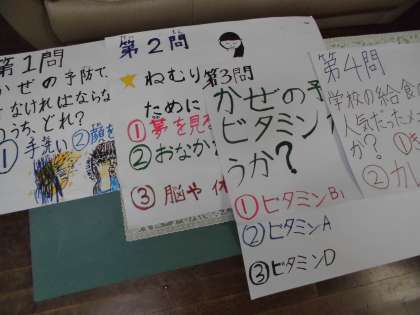 第1問
かぜの予防で、
なければならな
のうち、どれ?
①手洗い ②顔を
第2問
★ねむり
ために
①夢を見
②おなか
③脳や 休
第3問
かぜの予
ビタミン
うか?
①ビタミンB1
②ビタミンA
③ビタミンD
第4問
学校の給食
人気だったメニ
か?
①
②カレ